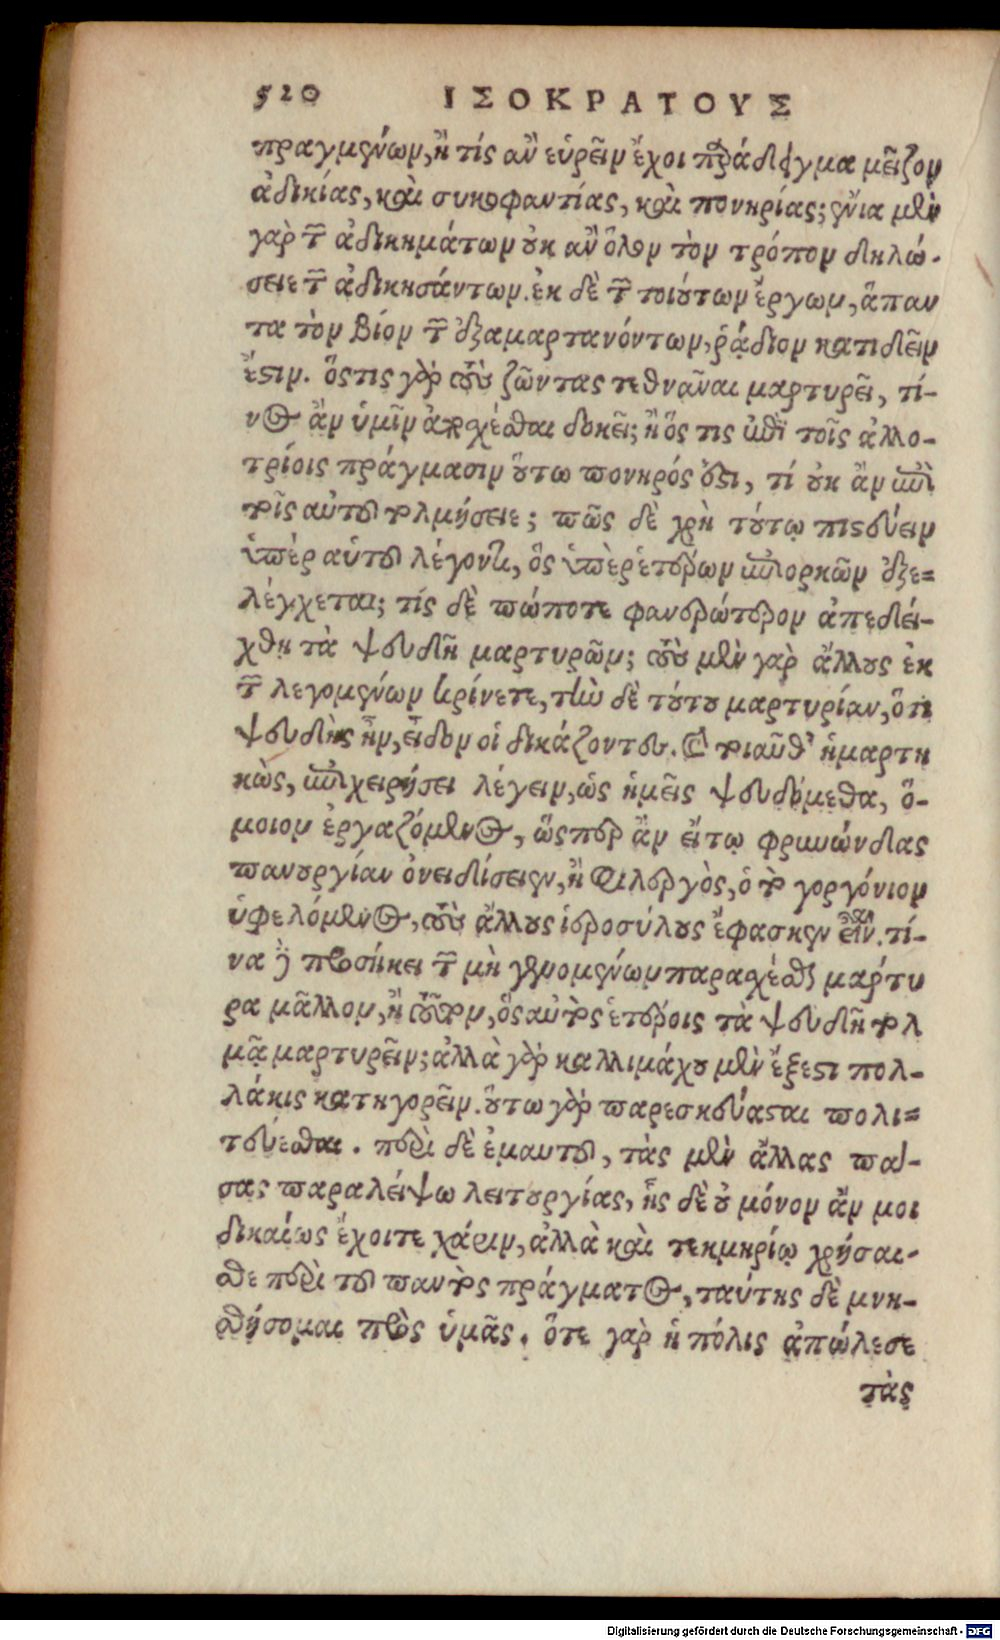 520 ΙΣΟΚΡΑΤΟΥΣ
πραγμένων, ἢ τίς ἂν εὑρεῖν ἔχοι παράδειγμα μεῖζον
ἀδικίας, καὶ συκοφαντίας, καὶ πονηρίας; ἔνια μὲν
γὰρ τῶν ἀδικημάτων οὐκ ἂν ὅλον τὸν τρόπον δηλώ-
σειε τῶν ἀδικησάντων. ἐκ δὲ τῶν τοιούτων ἔργων, ἅπαν
τα τὸν βίον τῶν ἐξαμαρτανόντων, ῥᾴδιον κατιδεῖν
ἔστιν. ὅστις γὰρ τοὺς ζῶντας τεθνᾶναι μαρτυρεῖ, τί-
νος ἂν ὑμῖν ἀποσχέσθαι δοκεῖ; ἢ ὅς τις ἐπὶ τοῖς ἀλλο-
τρίοις πράγμασιν οὕτω πονηρός ἐστι, τί οὐκ ἂν ἐπὶ
τοῖς αὑτοῦ τολμήσειε; πῶς δὲ χρὴ τούτῳ πιστεύειν
ὑπὲρ αὑτοῦ λέγοντι, ὃς ὑπὲρ ἑτέρων ἐπιορκῶν ἐξε=
λέγχεται; τίς δὲ πώποτε φανερώτερον ἀπεδεί-
χθη τὰ ψευδῆ μαρτυρῶν; τοὺς μὲν γὰρ ἄλλους ἐκ
τῶν λεγομένων κρίνετε, τὴν δὲ τούτου μαρτυρίαν, ὅτι
ψευδὴς ἦν, εἶδον οἱ δικάζοντες. καὶ τοιαῦθ' ἡμαρτη
κὼς, ἐπιχειρήσει λέγειν, ὡς ἡμεῖς ψευδόμεθα, ὅ-
μοιον ἐργαζόμενος, ὥσπερ ἂν εἴ τῳ φρυνώνδας
πανουργίαν ὀνειδίσειεν, ἢ Φιλεργὸς, ὁ τὸ γοργόνιον
ὑφελόμενος, τοὺς ἄλλους ἱεροσύλους ἔφασκεν εἶναι. τί-
να δὲ προσήκει τῶν μὴ γενομένων παρασχέσθαι μάρτυ
ρα μᾶλλον, ἢ τοῦτον, ὃς αὐτὸς ἑτέροις τὰ ψευδῆ τολ
μᾷ μαρτυρεῖν; ἀλλὰ γὰρ καλλιμάχου μὲν ἔξεστι πολ-
λάκις κατηγορεῖν. οὕτω γὰρ παρεσκεύασται πολι=
τεύεσθαι. περὶ δὲ ἐμαυτοῦ, τὰς μὲν ἄλλας πά-
σας παραλείψω λειτουργίας, ἧς δὲ οὐ μόνον ἄν μοι
δικαίως ἔχοιτε χάριν, ἀλλὰ καὶ τεκμηρίῳ χρήσαι-
σθε περὶ τοῦ παντὸς πράγματος, ταύτης δὲ μνη-
σθήσομαι πρὸς ὑμᾶς. ὅτε γὰρ ἡ πόλις ἀπώλεσε
τὰς
Digitalisierung gefördert durch die Deutsche Forschungsgemeinschaft - DFG